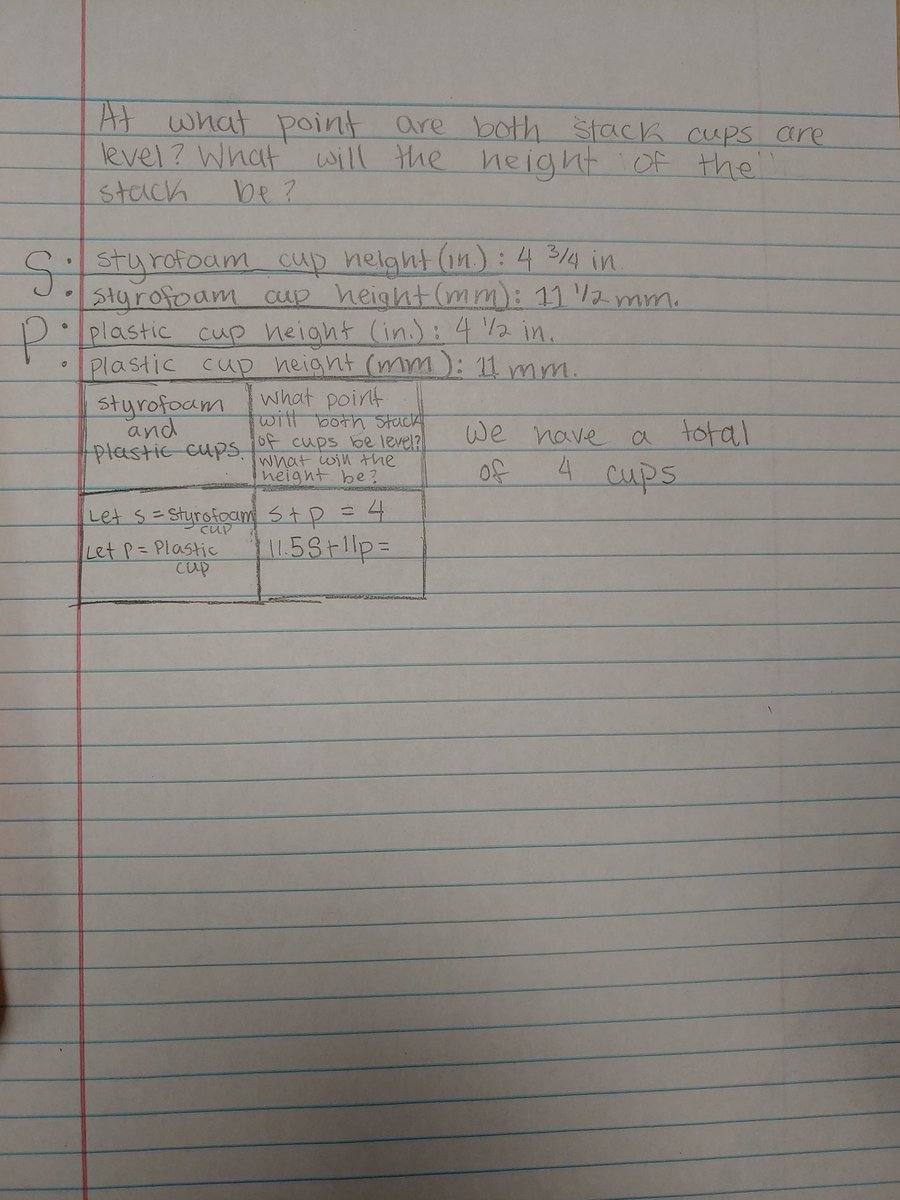 At what point are both stack cups are
level? What will the height of the
stack be?
S: styrofoam cup height (in.) : 4 3/4 in.
styrofoam cup height (mm): 11 1/2 mm.
P: plastic cup height (in.) : 4 1/2 in.
plastic cup height (mm): 11 mm.
styrofoam
and
plastic cups.
what point
will both stack
of cups be level?
what will the
height be?
we have a total
of 4 cups
Let s = styrofoam
cup
Let p = Plastic
cup
s + p = 4
11.5s + 11p =